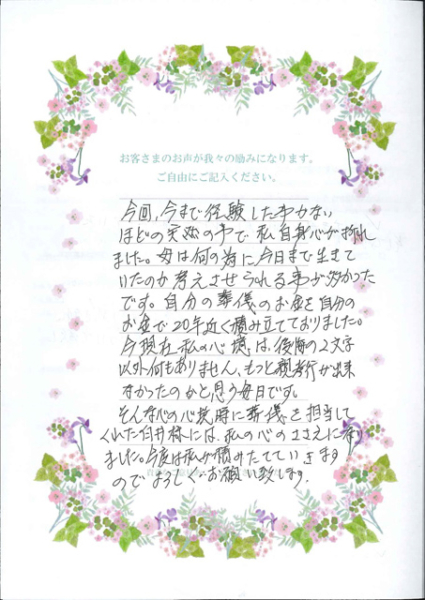 お客さまのお声が我々の励みになります。
ご自由にご記入ください。
今回、今まで経験した事がない
ほどの実務の中で私自身心が折れ
ました。母は何の為に今日まで生きて
いたのか考えさせられる事が多かった
です。自分の葬儀のお金を自分の
お金で20年近く積み立てておりました。
今現在私の心境は、後悔の2文字
以外何もありません、もっと親孝行が出来
なかったのかと思う毎日です。
そんな心の心境時に葬儀を担当して
くれた臼井様には、私の心のささえになり
ました。今度は私が積みたてていきます
のでよろしくお願い致します。